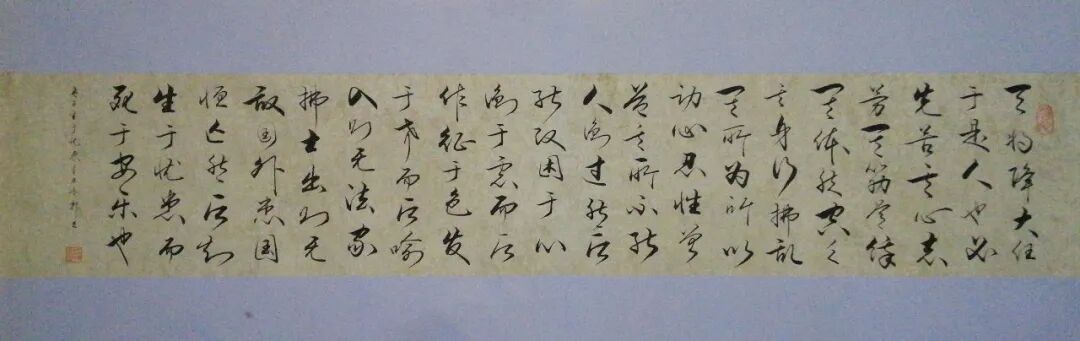 天将降大任
于是人也必
先苦其心志
劳其筋骨饿
其体肤空乏
其身行拂乱
其所为所以
动心忍性曾
益其所不能
人恒过然后
能改困于心
衡于虑而后
作征于色发
于声而后喻
入则无法家
拂士出则无
敌国外患国
恒亡然后知
生于忧患而
死于安乐也